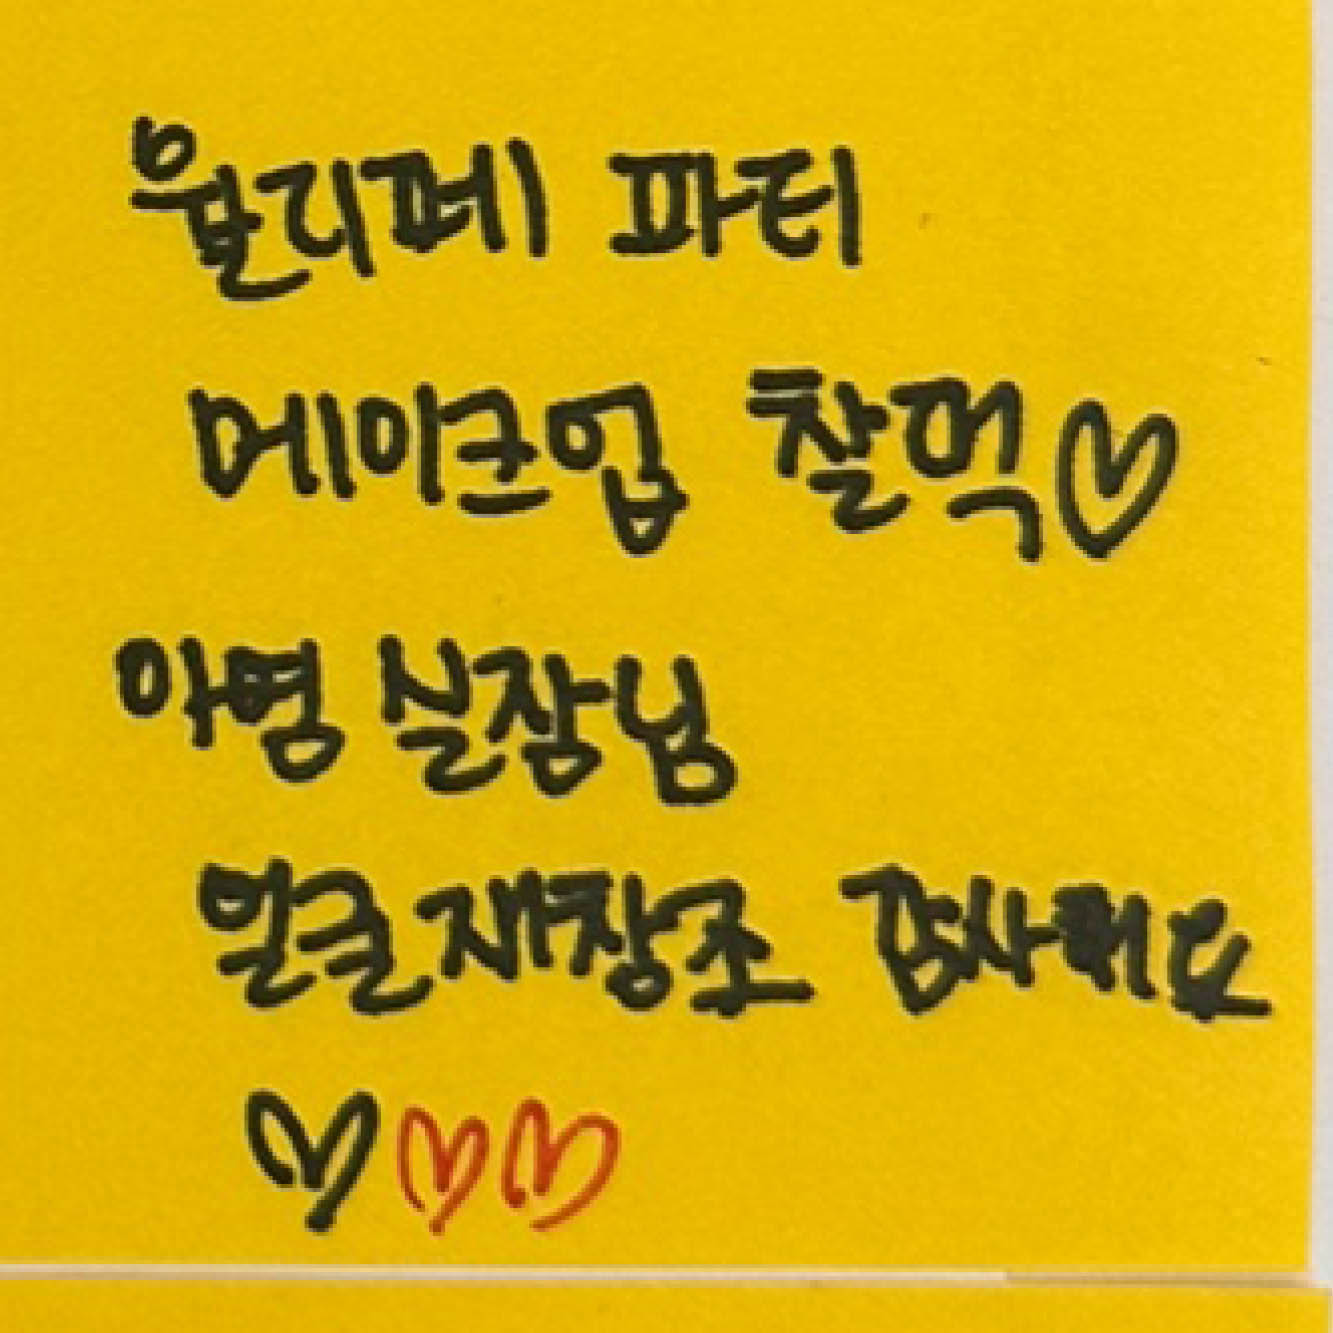 올리페 파티
메이크업 찰떡♡
아영 실장님
얼굴재창조 감사해요
♡♡♡